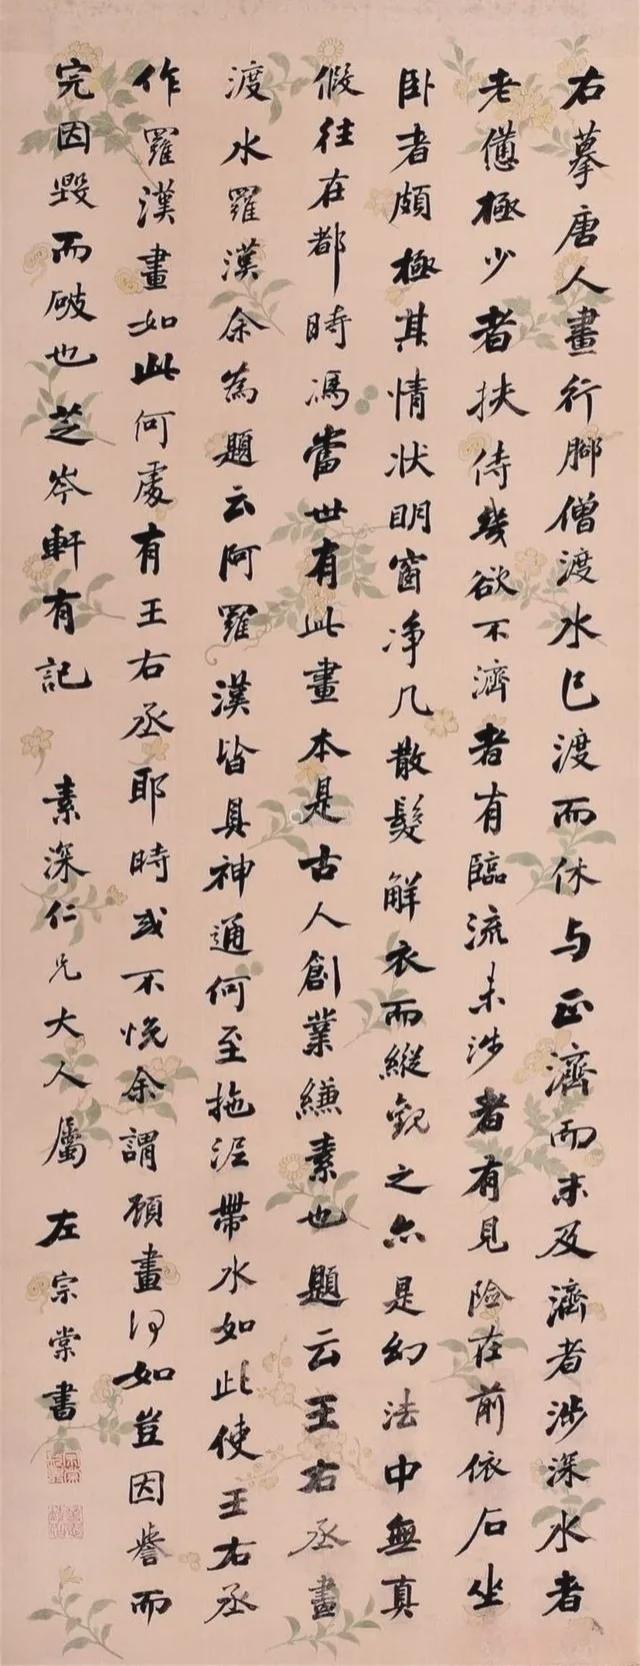 右摹唐人畫行腳僧渡水已渡而休与正濟而未及濟者涉深水者
老憊極少者扶侍幾欲不濟者有臨流未涉者有見險在前依石坐
臥者頗極其情狀明窗净几散髮解衣而縱觀之亦是幻法中無真
假往在都時馮當世有此畫本是古人創業縑素也題云王右丞畫
渡水羅漢余為題云阿羅漢皆具神通何至拖泥帶水如此使王右丞
作羅漢畫如此何處有王右丞耶時或不悅余謂顧畫何如豈因譽而
完因毀而破也芝岑軒有記 素深仁兄大人屬 左宗棠書